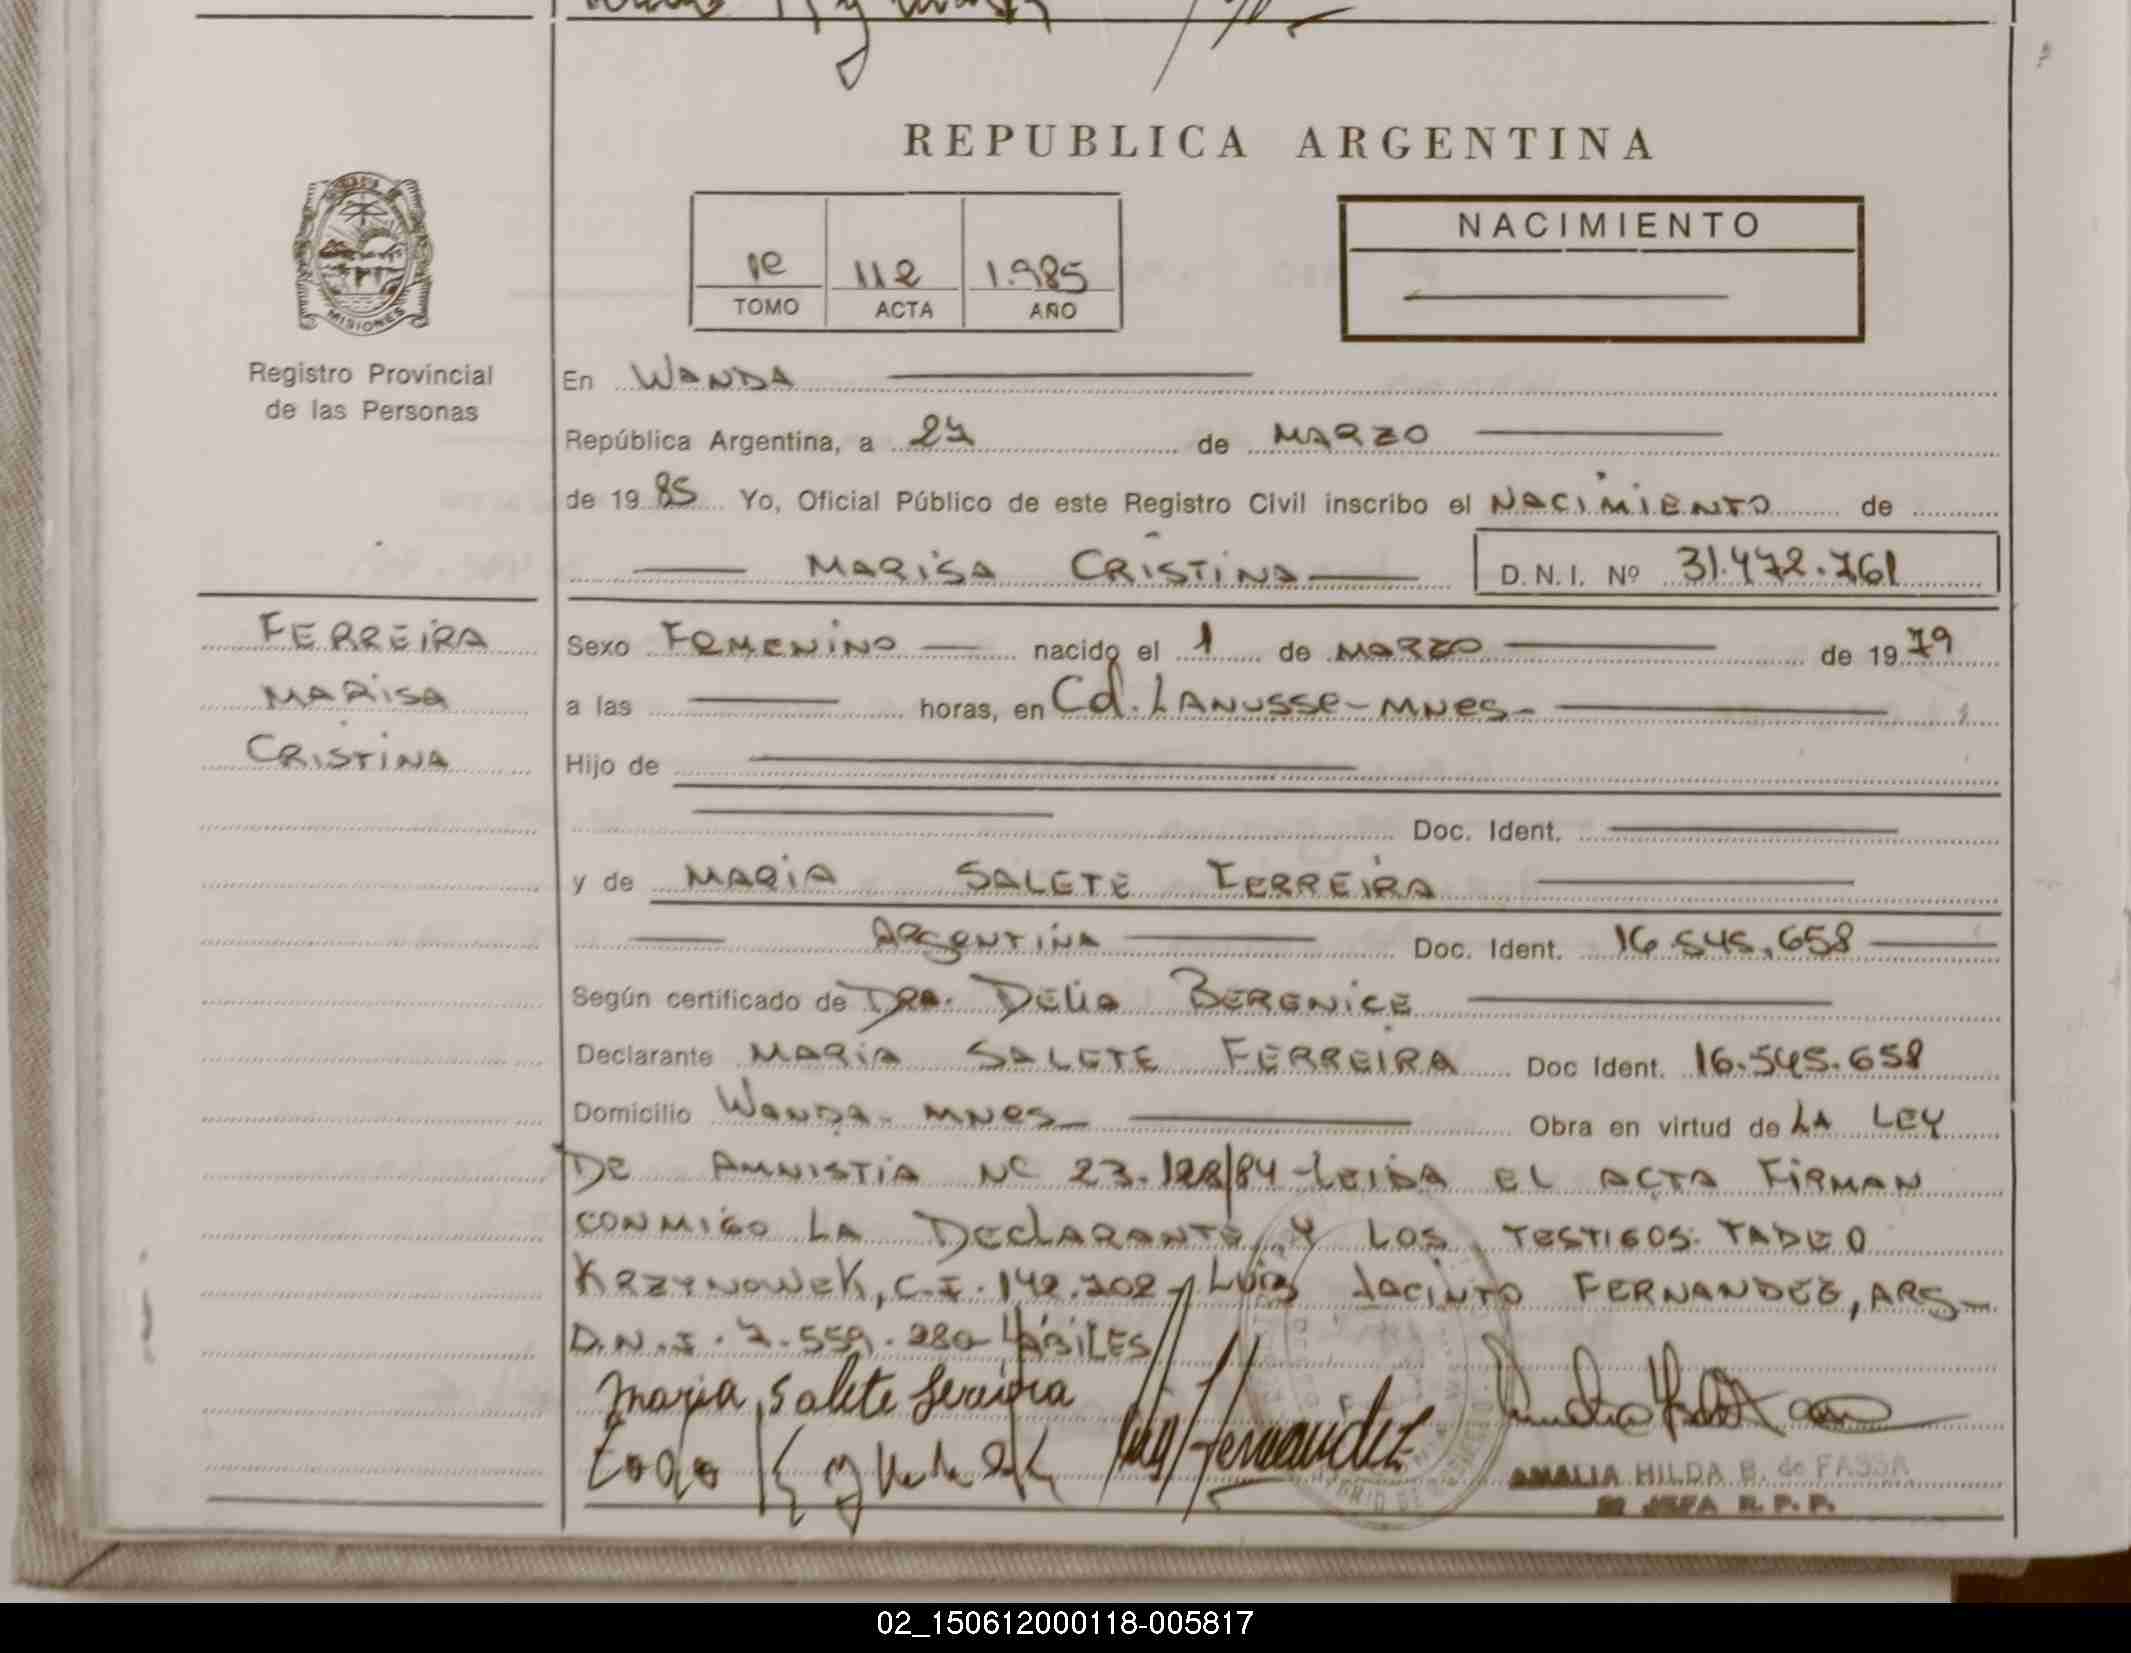 REPUBLICA ARGENTINA
MISIONES
Registro Provincial
de las Personas
1º 112 1.985
TOMO ACTA AÑO
NACIMIENTO
En WANDA
República Argentina, a 27 de MARZO
de 19 85 Yo, Oficial Público de este Registro Civil inscribo el NACIMIENTO de
MARISA CRISTINA D.N.I. Nº 31.472.761
FERREIRA
MARISA
CRISTINA
Sexo FEMENINO nacido el 1 de MARZO de 19 79
a las horas, en Cd. LANUSSE-MNES-
Hijo de
Doc. Ident.
y de MARIA SALETE FERREIRA
ARGENTINA Doc. Ident. 16.545.658
Según certificado de DRA. DELIA BERENICE
Declarante MARIA SALETE FERREIRA Doc Ident. 16.545.658
Domicilio WANDA- MNES- Obra en virtud de LA LEY
DE AMNISTIA Nº 23.128/84-LEIDA EL ACTA FIRMAN
CONMIGO LA DECLARANTE Y LOS TESTIGOS: TADEO
KRZYNOWEK, C.I. 142.702- LUIS JACINTO FERNANDEZ, ARG-
D.N.I. 7.559.280- HÁBILES
Maria Salete Ferreira
Luis Fernandez
AMALIA HILDA B. de FASSA
JEFA R. P. P.
02_150612000118-005817